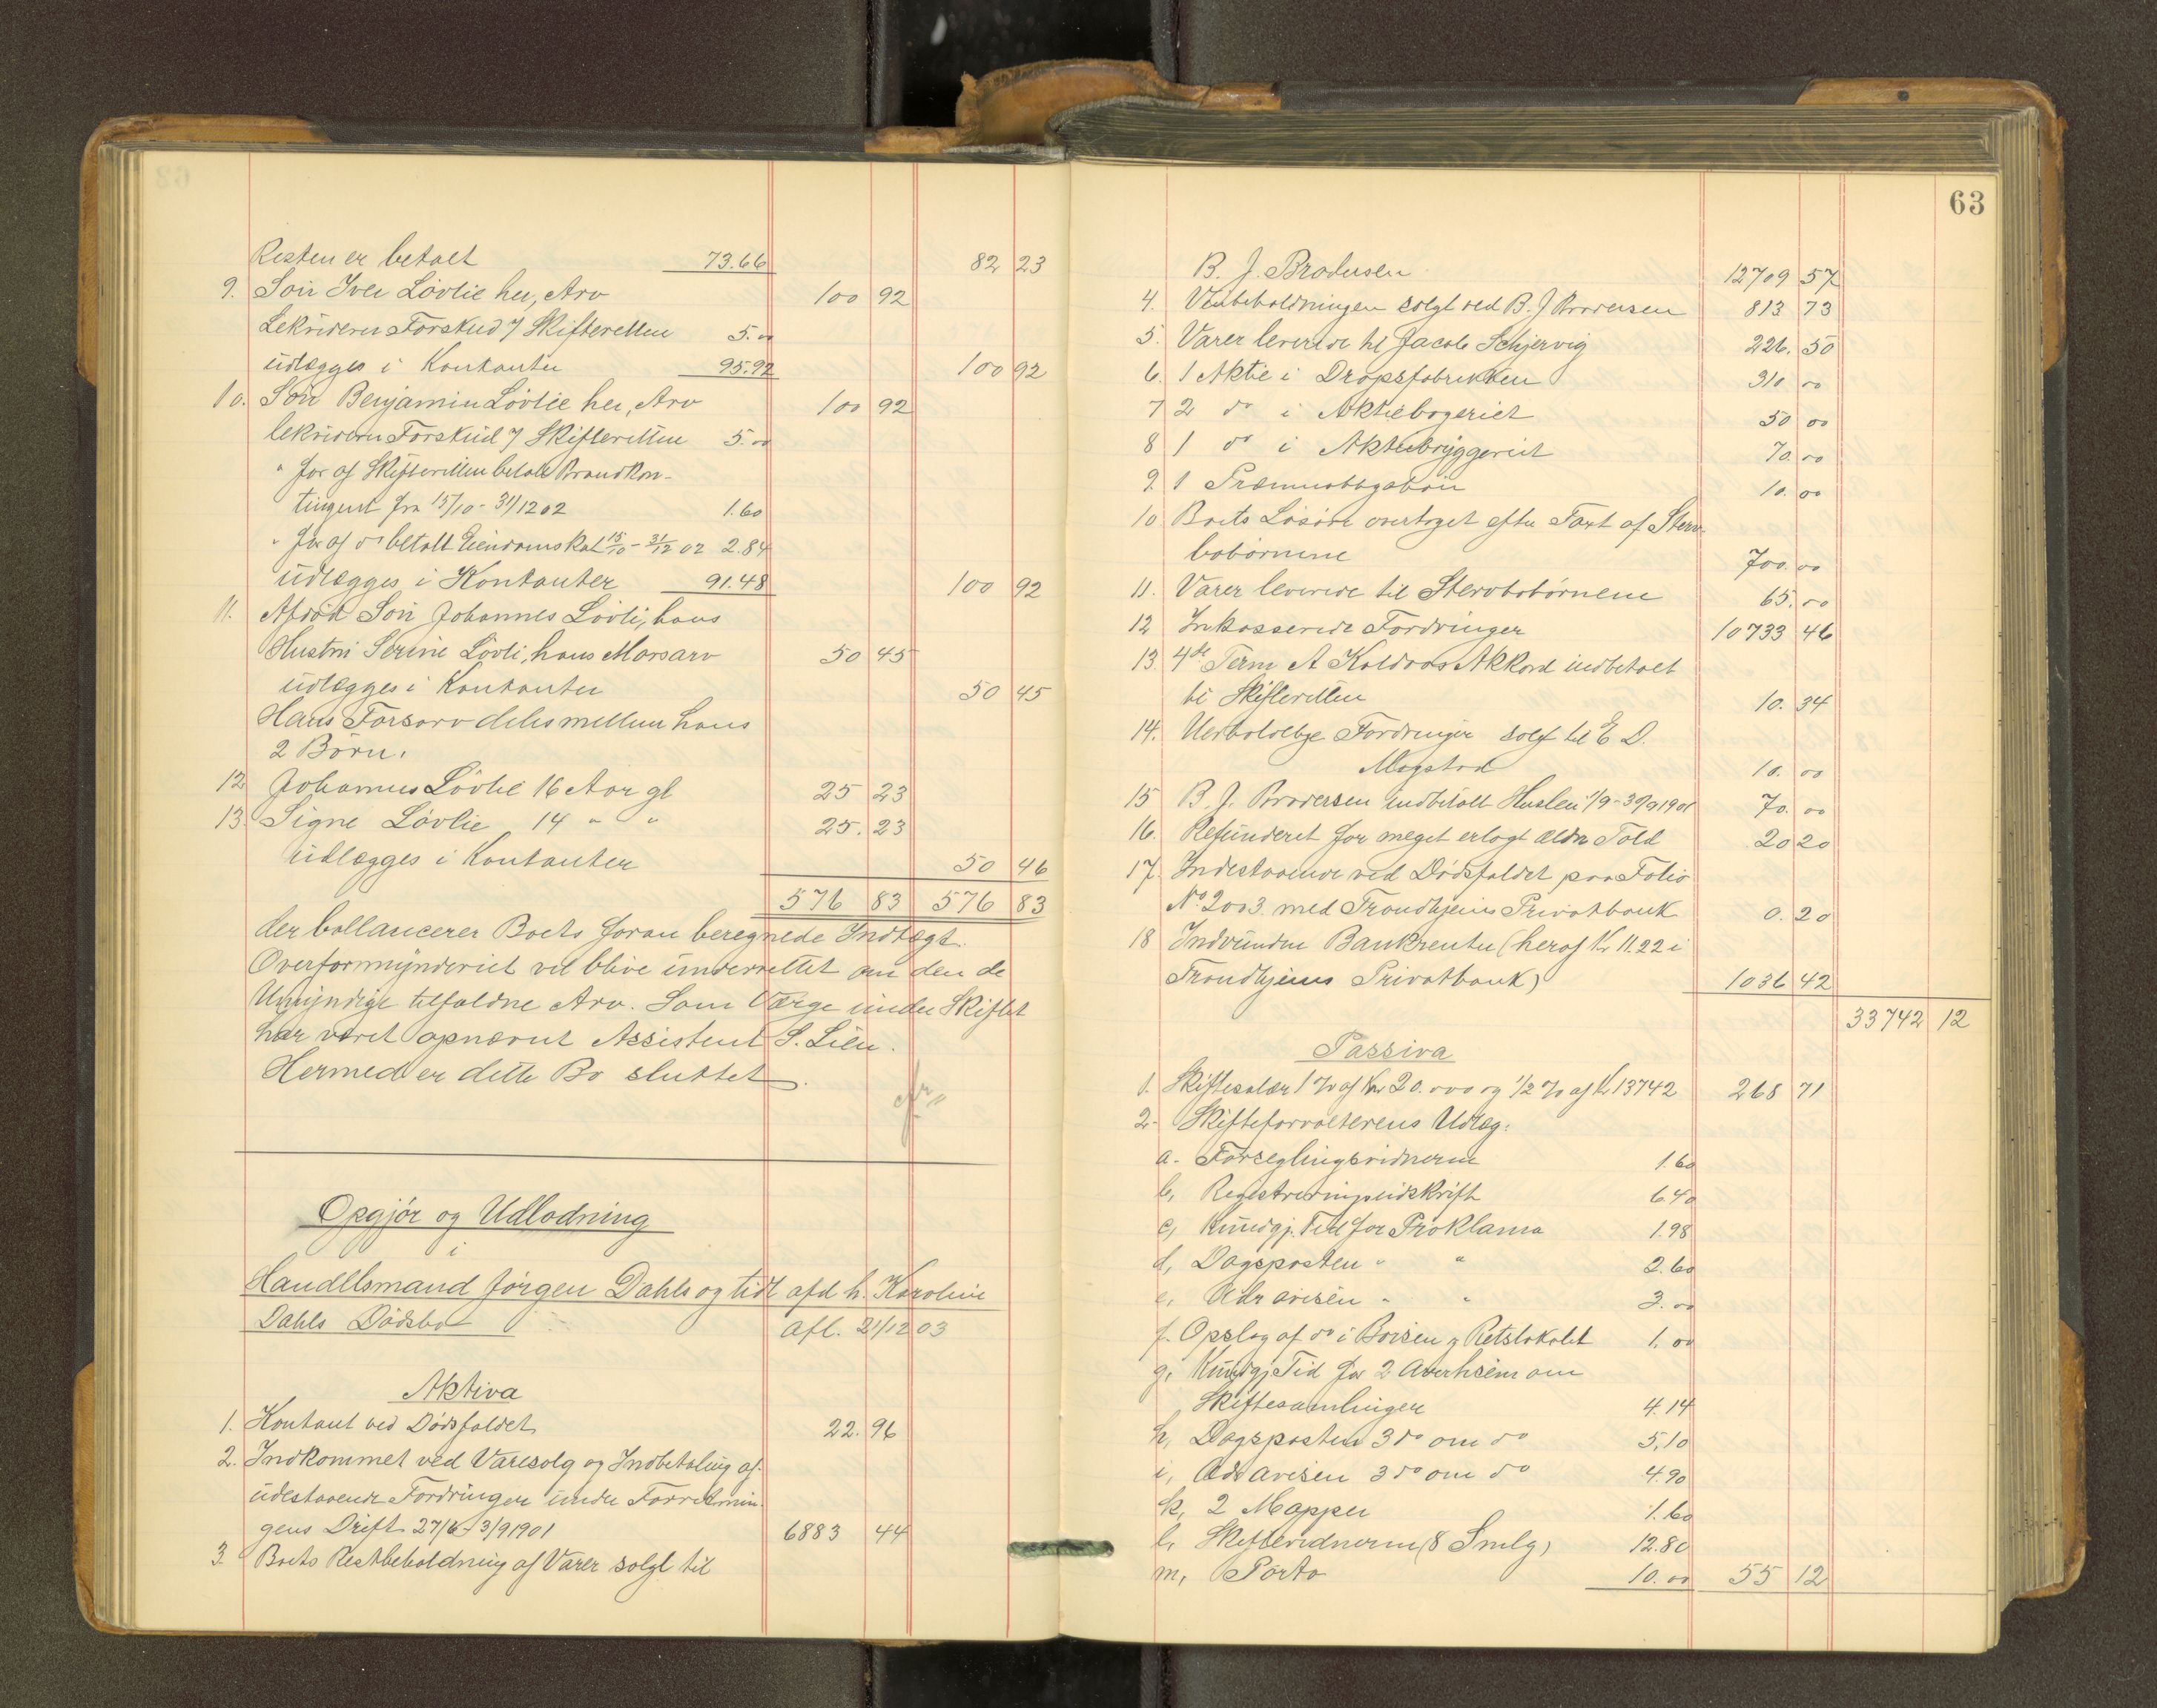 Resten er betalt 73.66 82 23
9. Søn Iver Løvlie her, Arv 100 92
Lekvideru Forskud 7 Skifteretten 5.00
udlægges i Kontanter 95.92 100 92
10. Søn Benjamin Løvlie her, Arv 100 92
lekvideru Forskud 7 Skifteretten 5.00
" for af Skifteretten betalt Brandkon-
tingent fra 15/10 - 31/12 02 1.60
" for af do betalt Eiendomskat 15/10 - 31/12 02 2.84
udlægges i Kontanter 91.48 100 92
11. Afdød Søn Johannes Løvli, hans
Hustru Serine Løvli, hans Morsarv 50 45
udlægges i Kontanter 50 45
Hans Farsarv deles mellem hans
2 Børn:
12 Johannes Løvlie 16 Aar gl 25 23
13. Signe Løvlie 14 " " 25. 23
udlægges i Kontanter 50 46
576 83 576 83
der ballancerer Boets foran beregnede Indtægt.
Overformynderiet vil blive underrettet om den de
Umyndige tilfaldne Arv. Som Værge under Skiftet
har været opnævnt Assistent S. Lien.
Hermed er dette Bo sluttet.
Opgjør og Udlodning
i
Handelsmand Jørgen Dahls og tidl afd h. Karoline
Dahls Dødsbo afl. 21/12 03
Aktiva
1. Kontant ved Dødsfaldet 22. 96
2. Indkommet ved Varesalg og Indbetaling af
udestaaende Fordringer under Forretnin-
gens Drift 27/6 - 3/9 1901 6883 44
3 Boets Restbeholdning af Varer solgt til
63
B. J. Brodersen 12709 57
4. Vinbeholdningen solgt ved B. J. Brodersen 813 73
5. Varer leverede til Jacob Schjervig 226. 50
6. 1 Aktie i Dropsfabrikken 310 00
7 2 do i Aktiebageriet 50 00
8 1 do i Aktiebryggeriet 70. 00
9 1 10. 00
10 Boets Løsøre overtaget efter Taxt af Sterv-
bobørnene 700. 00
11. Varer leverede til Stervbobørnene 65. 00
12 Inkasserede Fordringer 10733 46
13. 4de Term A Koldaas Akkord indbetalt
til Skifteretten 10. 34
14. Uerholdelige Fordringer solgt til E D.
Mogstad 10. 00
15 B. J. Brodersen indbetalt Husleie 1/9 - 30/9 1901 70. 00
16. Refunderet for meget erlagt Told 20 20
17. Indestaaende ved Dødsfaldet paa Folio
No 2003 med Trondhjems Privatbank 0. 20
18 Indvundne Bankrenter (heraf Kr 11.22 i
Trondhjems Privatbank) 1036 42
33742 12
Passiva
1. Skiftesalær 1 % af Kr 20.000 og 1/2 % af Kr 13742 268 71
2. Skifteforvalterens Udlæg:
a. Forseglingsvidnerne 1.60
b, Registreringsudskrift 6.40
c, Kundgj. Tid for Proklama 1.98
d, Dagsposten " " 2.60
e, Adr avisen " " 3.00
f. Opslag af do i Børsen og Retslokalet 1.00
g, Kundgj Tid for 2 Averhsem om
Skiftesamlinger 4.14
h, Dagsposten 3 do om do 5.10
i, Adr avisen 3 do om do 4.90
k, 2 Mapper 1.60
l, Skiftevidnerne (8 Smlg) 12.80
m, Porto 10.00 55 12